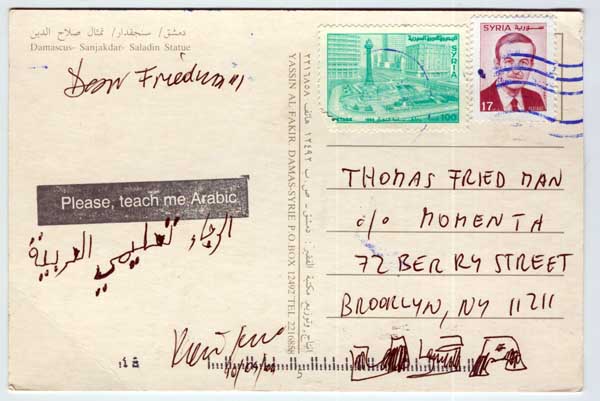 دمشق/ سنجقدار/ تمثال صلاح الدين
Damascus- Sanjakdar- Saladin Statue
Dear Friedman
Please, teach me Arabic
الرجاء تعليمي العربية
YASSIN AL FAKIR. DAMAS-SYRIE P.O.BOX 12492 TEL. 2216858
إنتاج وتوزيع مكتبة الفقير: دمشق - ص. ب ١٢٤٩٢ هاتف ٢٢١٦٨٥٨
SYRIA
100
SYRIA
17
THOMAS FRIEDMAN
c/o MOMENTA
72 BERRY STREET
BROOKLYN, NY 11211